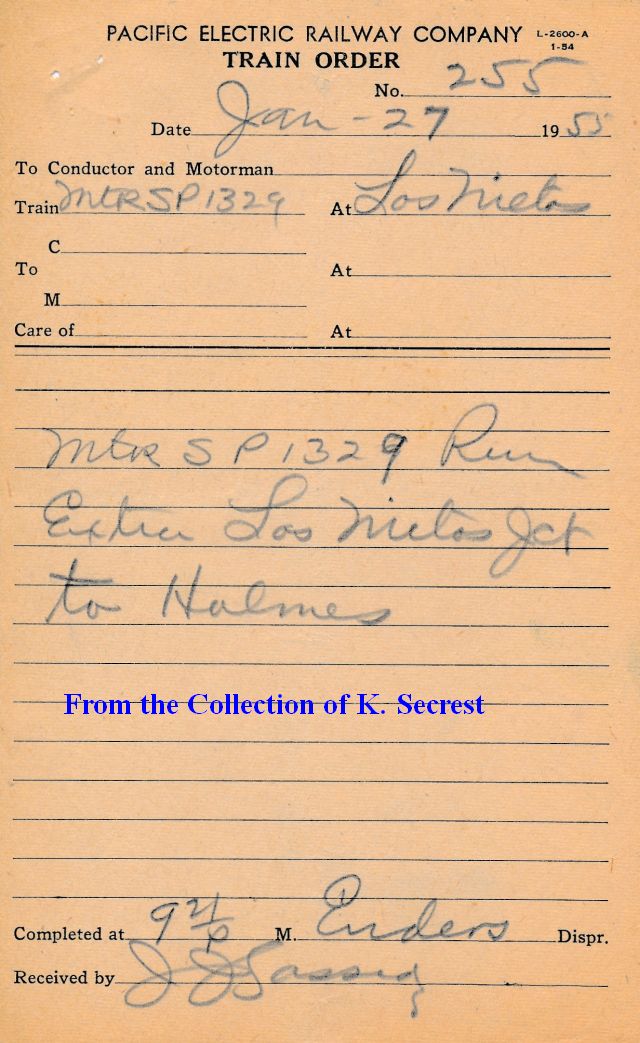 PACIFIC ELECTRIC RAILWAY COMPANY L-2600-A
1-54
TRAIN ORDER
No. 255
Date Jan - 27 1955
To Conductor and Motorman
Train MtR SP 1329 At Los Nietos
C
To At
M
Care of At
MtR SP 1329 Run
Extra Los Nietos Jct
to Holmes
From the Collection of K. Secrest
Completed at 9 21/P M. Enders Dispr.
Received by J J